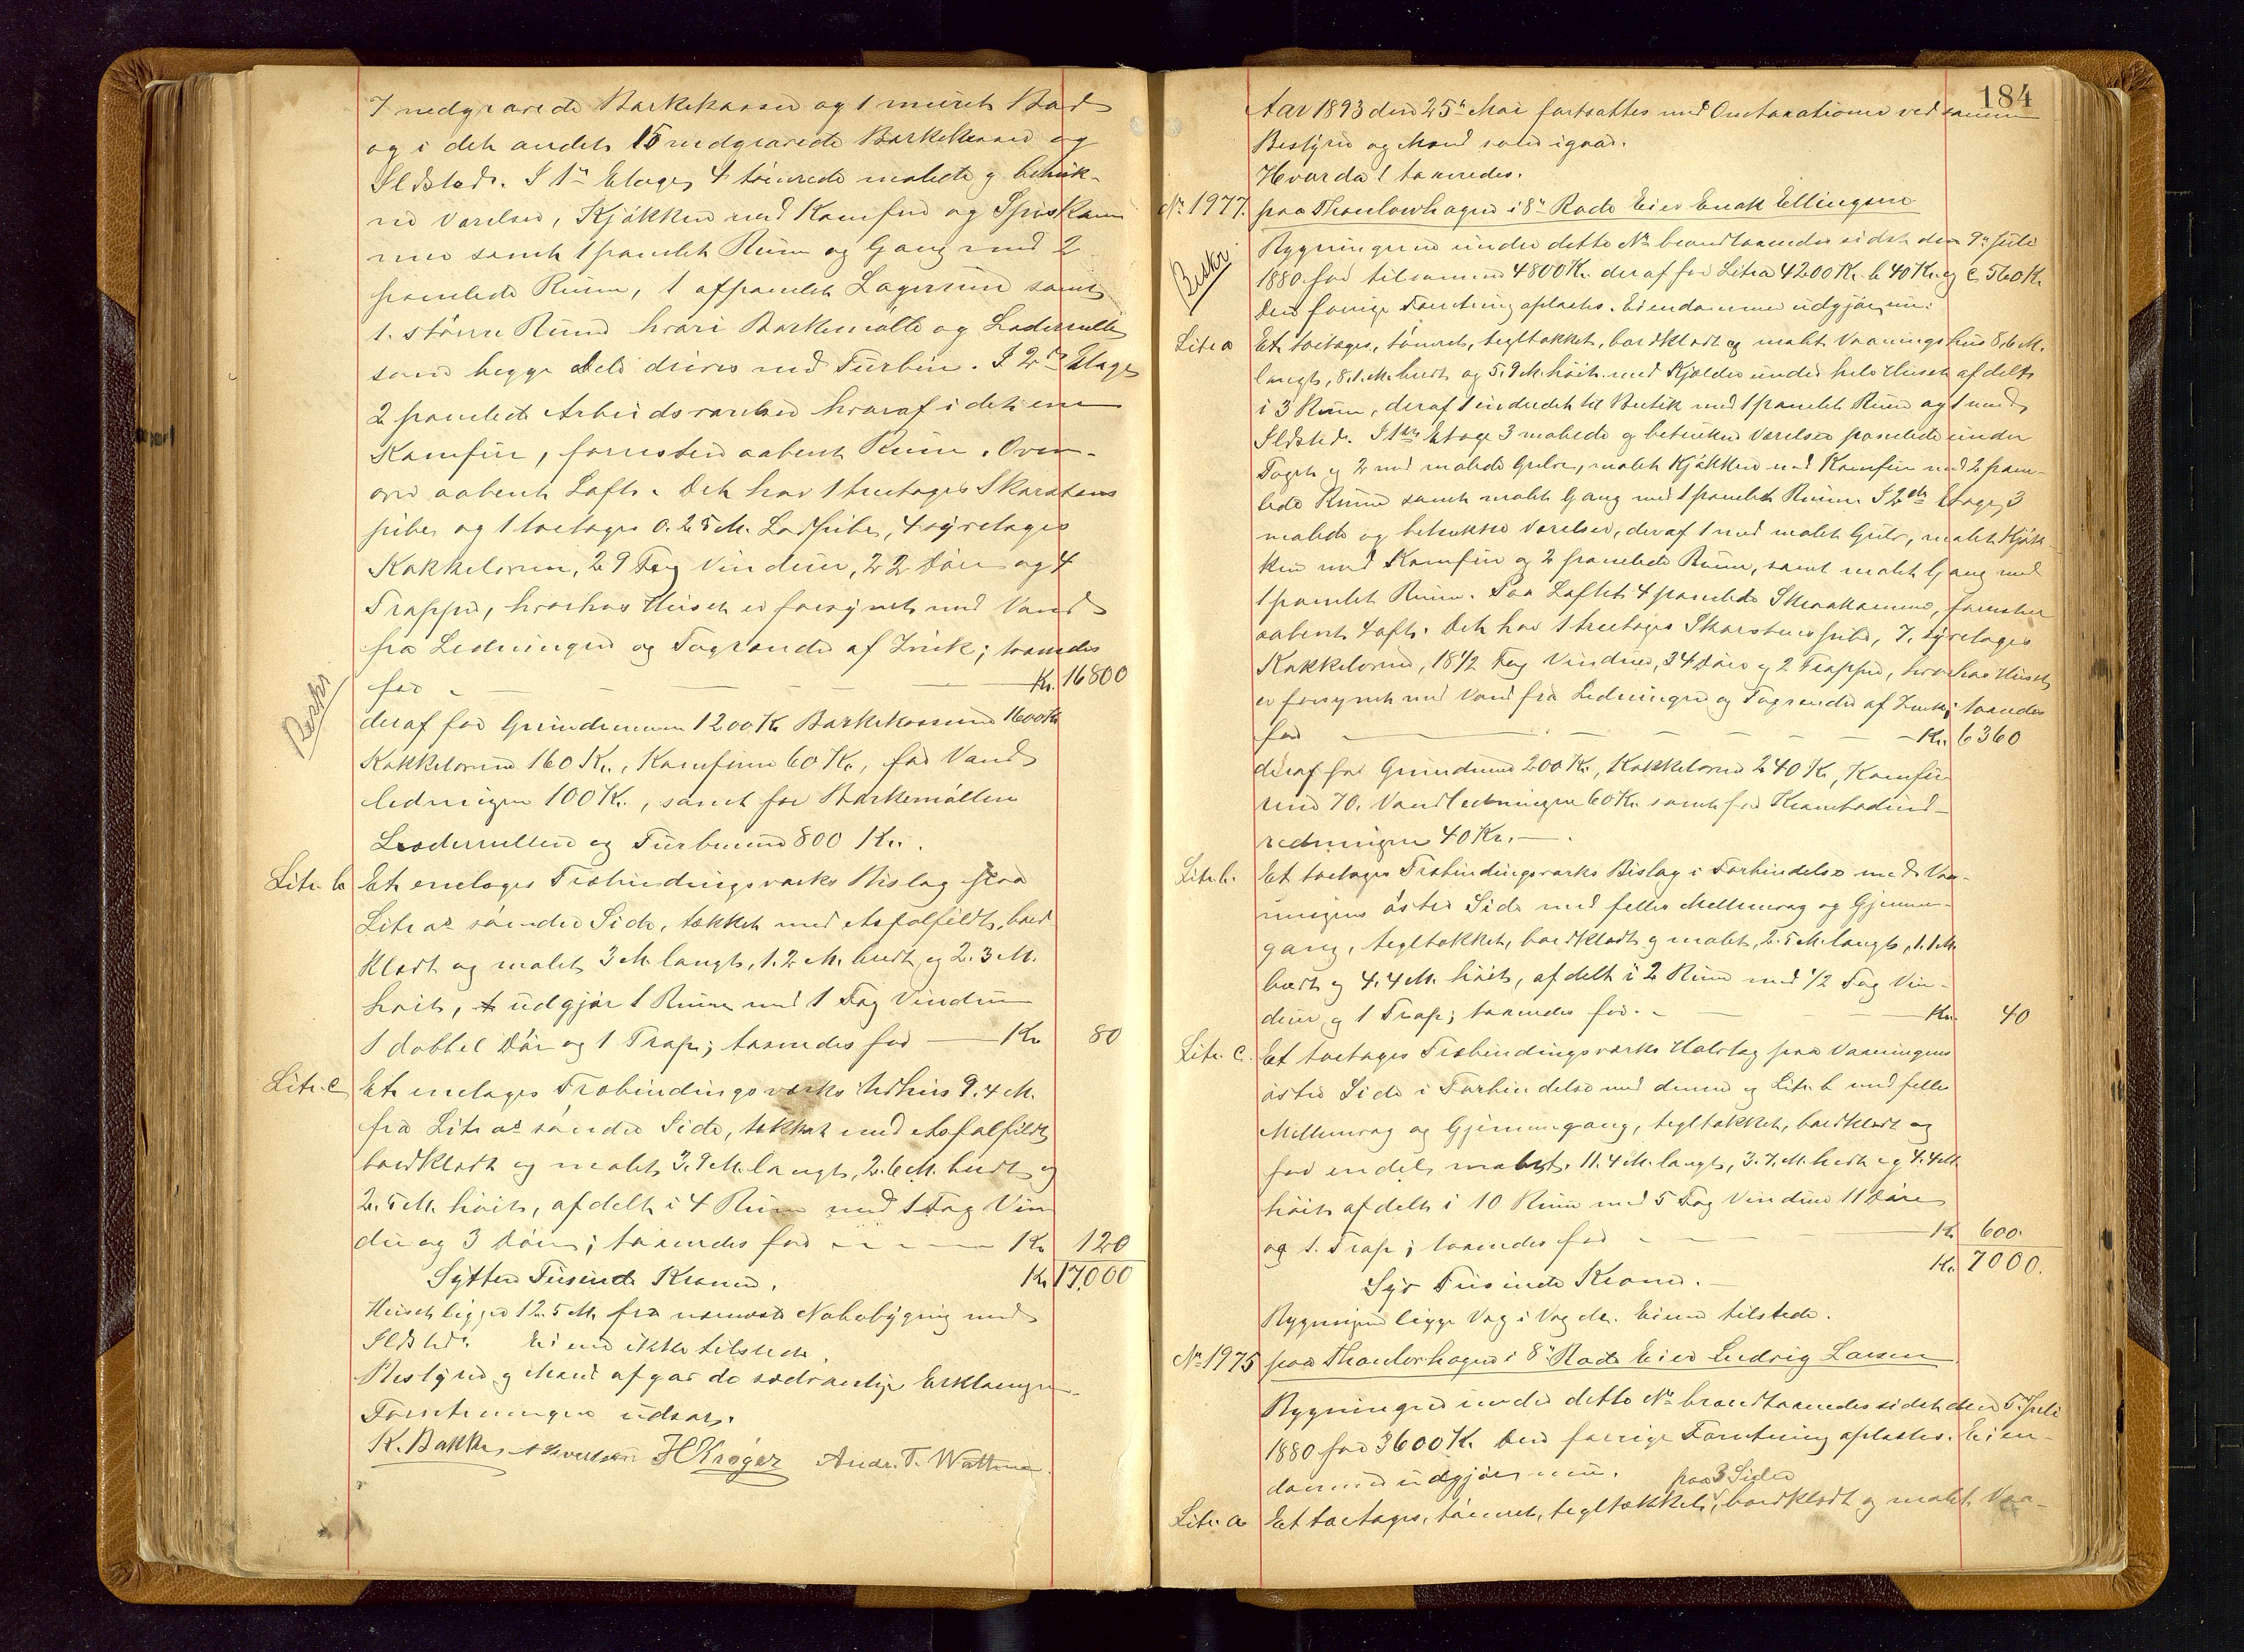 7 nedgravede Barkekasser og 1 muret Bad
og i det andet 15 nedgravede Barkekasser og
Ildsted. I 1ste Etage 4 tømrede malede og betræk-
ne Værelser, Kjøkken med Komfur og Spiskam
mer samt 1 panelet Rum og Gang med 2
panelede Rum, 1 afpanelet Lagerrum samt
1. større Rum hvori Barkemølle og Læderrulle
som begge Dele drives med Turbin. I 2den Etage
2 panelede Arbeidsværelser hvoraf i det ene
Komfur, forresten aabent Rum. Oven-
over aabent Loft. Det har 1 treetages Skorstens
pibe og 1 toetages 0.25 M. Lodpibe, 4 syretages
Kakkelovne, 29 Fag Vinduer, 22 Døre og 4
Trapper, hvorhos Huset er forsynet med Vand
fra Ledningen og Tagrender af Zink; taxeredes
for - Kr. 16800
Beskr
deraf for Grundmuren 1200 Kr Barkekasserne 1600 Kr
Kakkelovnene 160 Kr., Komfurene 60 Kr., for Vand
ledningen 100 Kr., samt for Barkemøllen
Læderrullen og Turbinen 800 Kr.
Litr. b Et enetages Træbindingsværks Bislag paa
Litr as søndre Side, tækket med Asfaltfildt, bord
klædt og malet 3 M. langt, 1.2 M. bredt og 2.3 M.
høit, udgjør 1 Rum med 1 Fag Vindu
1 dobbel Dør og 1 Trap; taxeredes for — Kr 80
Litr. c Et enetages Træbindingsværks Udhus 9.4 M.
fra Litr as søndre Side, tækket med Asfaltfildt
bordklædt og malet 3.9 M. langt, 2.6 M. bredt og
2.5 M. høit, afdelt i 4 Rum med 1 Fag Vin
du og 3 Døre; taxeredes for — Kr 120
Sytten Tusinde Kroner. Kr 17,000
Huset ligger 12.5 M. fra nærmeste Nabobygning med
Ildsted. Eieren ikke tilstede.
Bestyrer og Mænd afgav de sædvanlige Erklæringer.
Forretningen udsat.
K. Bakke HKrøger Andr. T. Wattne.
184
Aar 1893 den 25de Mai fortsattes med Omtaxationen ved samme
Bestyrer og Mænd som igaar.
Hvorda! taxeredes.
No. 1977. paa Thaulowhagen i 8de Rode Eier Enok Ellingsen
Beskr.
Bygningerne under dette No brandtaxeredes sidst den 9de Juli
1880 for tilsammen 4800 Kr. deraf for Litra a 4200 Kr. b 40 Kr. og c 560 Kr.
Den forrige Forretning oplæstes. Eiendommen udgjør nu:
Litr a Et toetages, tømret, tegltækket, bordklædt og malet Vaaningshus 8,6 M.
langt, 8.1. M. bredt og 5.9 M. høit med Kjælder under hele Huset afdelt
i 3 Rum, deraf 1 indredet til Butik med 1 panelet Rum og 1 med
Ildsted. I 1ste Etage 3 malede og betrukne Værelser panelede under
Taget og 2 med malede Gulve, malet Kjøkken med Komfur med 2 pane-
lede Rum samt malet Gang med 1 panelet Rum. I 2den Etage, 3
malede og betrukne Værelser, deraf 1 med malet Gulv, malet Kjøk-
ken med Komfur og 2 panelede Rum, samt malet Gang med
1 panelet Rum. Paa Loftet 4 panelede Skraakammer, forresten
aabent Loft. Det har 1 treetages Skorstenspibe, 7. syretages
Kakkelovne, 18 1/2 Fag Vinduer, 34 Døre og 2 Trapper, hvorhos Huset
er forsynet med Vand fra Ledningen og Tagrender af Zink; taxeredes
for — Kr. 6360
deraf for Grundmuren 200 Kr., Kakkelovne 240 Kr, Komfu
rerne 70. Vandledningen 60 Kr. samt for Krambodind-
redningen 40 Kr. —.
Litr. b. Et toetages Træbindingsværks Bislag i Forbindelse med Vaa-
ningens østre Side med felles Mellemvæg og Gjennem-
gang, tegltækket, bordklædt og malet, 2.5 M. langt, 1.1 M.
bredt og 4.4 M. høit, afdelt i 2 Rum med 1/2 Fag Vin-
duer, og 1 Trap; taxeredes for. - Kr. 40
Litr. c. Et toetages Træbindingsværks Halvtag paa Vaaningens
østre Side i Forbindelse med denne og Litr. b med felles
Mellemvæg og Gjennemgang, tegltækket, bordklædt og
for endel malet. 11.4 M. langt, 3.7. M. bredt og 4.4 M
høit afdelt i 10 Rum med 5 Fag Vinduer 11 Døre
og 1. Trap; taxeredes for - Kr 600.
Syv Tusinde Kroner. — Kr. 7000.
Bygningerne ligge Væg i Væg etc. Eieren tilstede.
No. 1975 paa Thaulowhagen i 8de Rode Eier Ludvig Larsen
Bygningen under dette No brandtaxeredes sidst den 5te Juli
1880 for 3600 Kr. Den forrige Forretning oplæstes. Eien-
dommen udgjør nu.
paa 3 Sider
Litr. a Et toetages, tømret, tegltækket, bordklædt og malet Vaa-